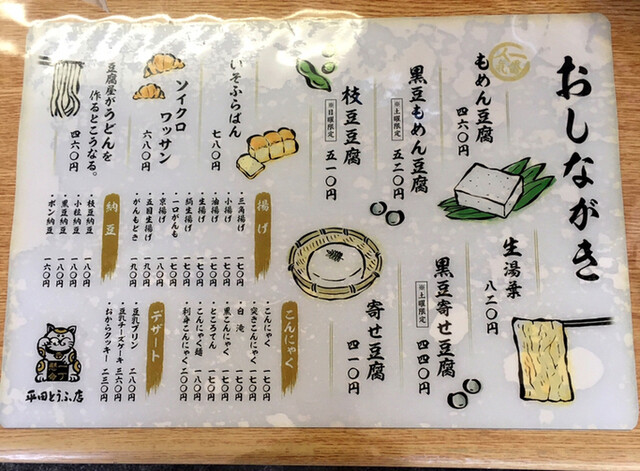 おしながき
もめん豆腐
四六〇円
黒豆もめん豆腐
※土曜限定
五二〇円
枝豆豆腐
※日曜限定
五一〇円
いそふらぱん
七八〇円
ソイクロ
ワッサン
六八〇円
豆腐屋がうどんを
作るとこうなる。
四六〇円
生湯葉
八二〇円
黒豆寄せ豆腐
※土曜限定
四四〇円
寄せ豆腐
四一〇円
揚げ
・三角揚げ 一七〇円
・小揚げ 一七〇円
・油揚げ 一七〇円
・生揚げ 一七〇円
・絹生揚げ 一七〇円
・一口がんも 一七〇円
・京揚げ 一八〇円
・五目生揚げ 一八〇円
・がんもどき 一九〇円
納豆
・枝豆納豆 一八〇円
・小粒納豆 一八〇円
・黒豆納豆 一八〇円
・ポン納豆 一六〇円
こんにゃく
・こんにゃく 一七〇円
・突きこんにゃく 一七〇円
・白滝 一七〇円
・黒こんにゃく 一七〇円
・ところてん 一七〇円
・こんにゃく麺 一八〇円
・刺身こんにゃく 二〇〇円
デザート
・豆乳プリン 二八〇円
・豆乳チーズケーキ 三六〇円
・おからクッキー 二三〇円
平田とうふ店